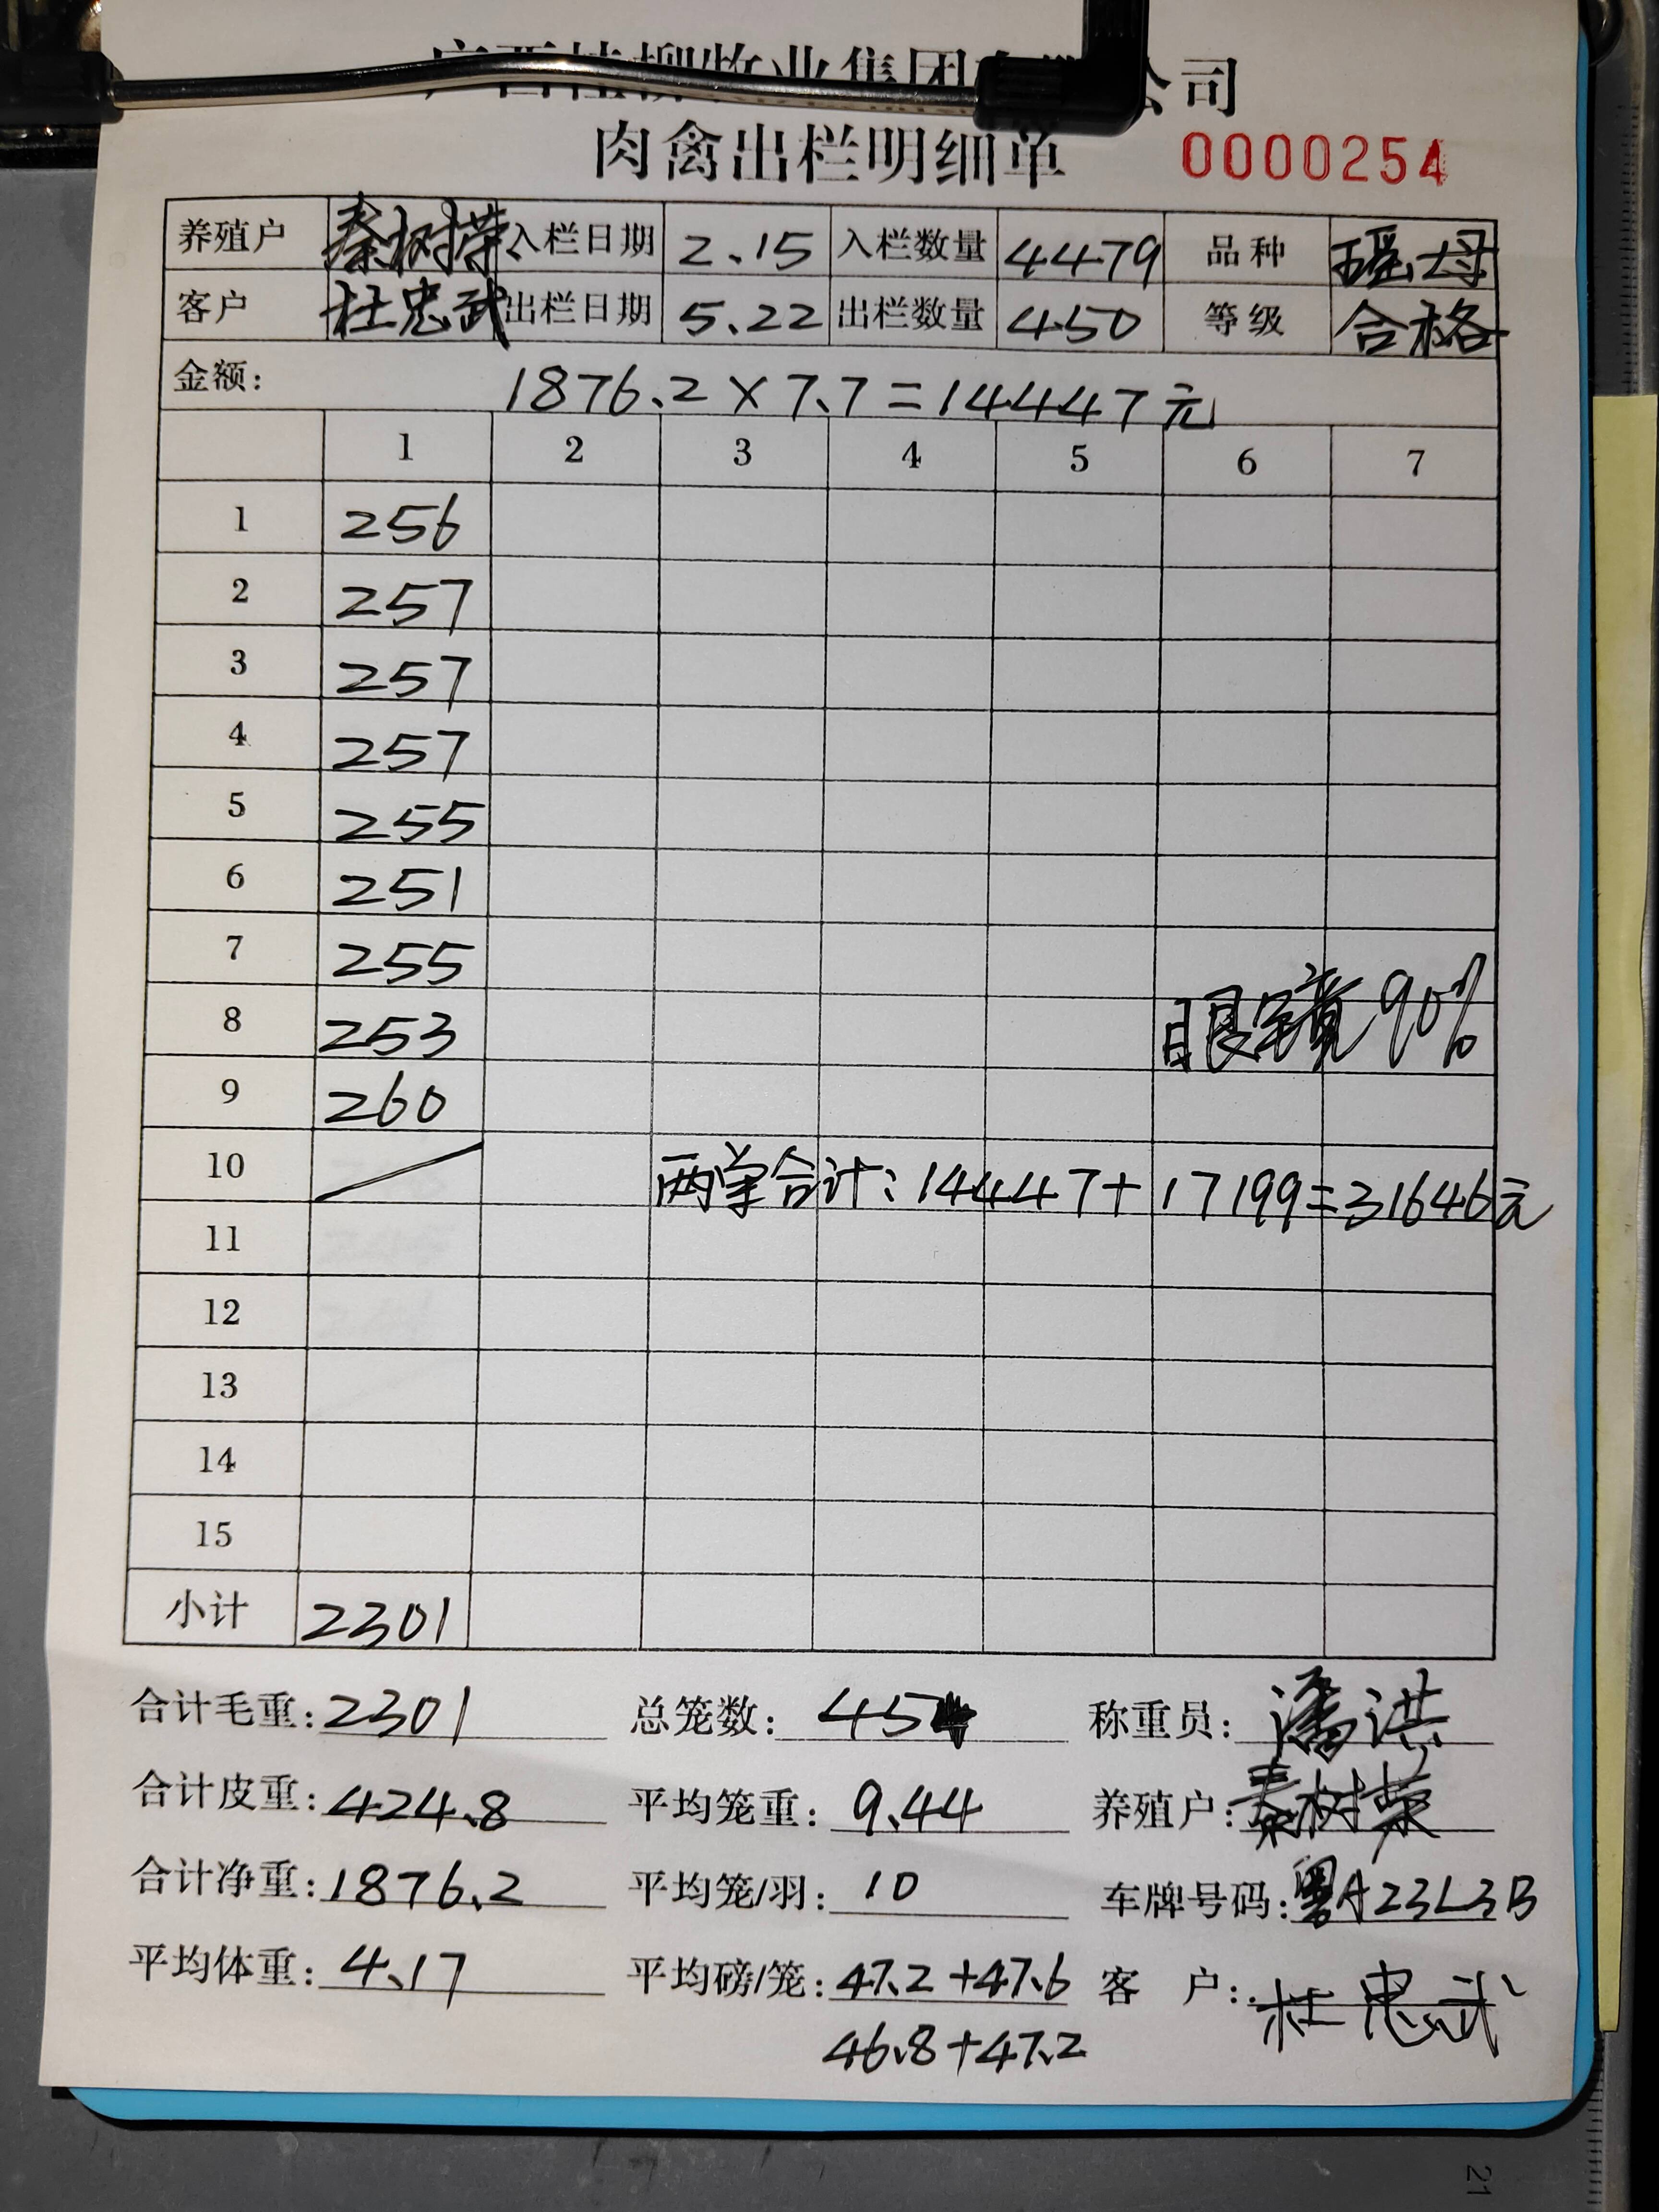 广西桂柳牧业集团有限公司
肉禽出栏明细单 0000254
养殖户 秦树荣 入栏日期 2.15 入栏数量 4479 品种 瑶母
客户 杜忠武 出栏日期 5.22 出栏数量 450 等级 合格
金额: 1876.2×7.7=14447元
1 2 3 4 5 6 7
1 256
2 257
3 257
4 257
5 255
6 251
7 255
8 253 眼镜90%
9 260
10 两单合计:14447+17199=31646元
11
12
13
14
15
小计 2301
合计毛重:2301 总笼数:45 称重员:潘洪
合计皮重:424.8 平均笼重:9.44 养殖户:秦树荣
合计净重:1876.2 平均笼/羽:10 车牌号码:粤A23L3B
平均体重:4.17 平均磅/笼:47.2+47.6 客户:杜忠武
46.8+47.2
21